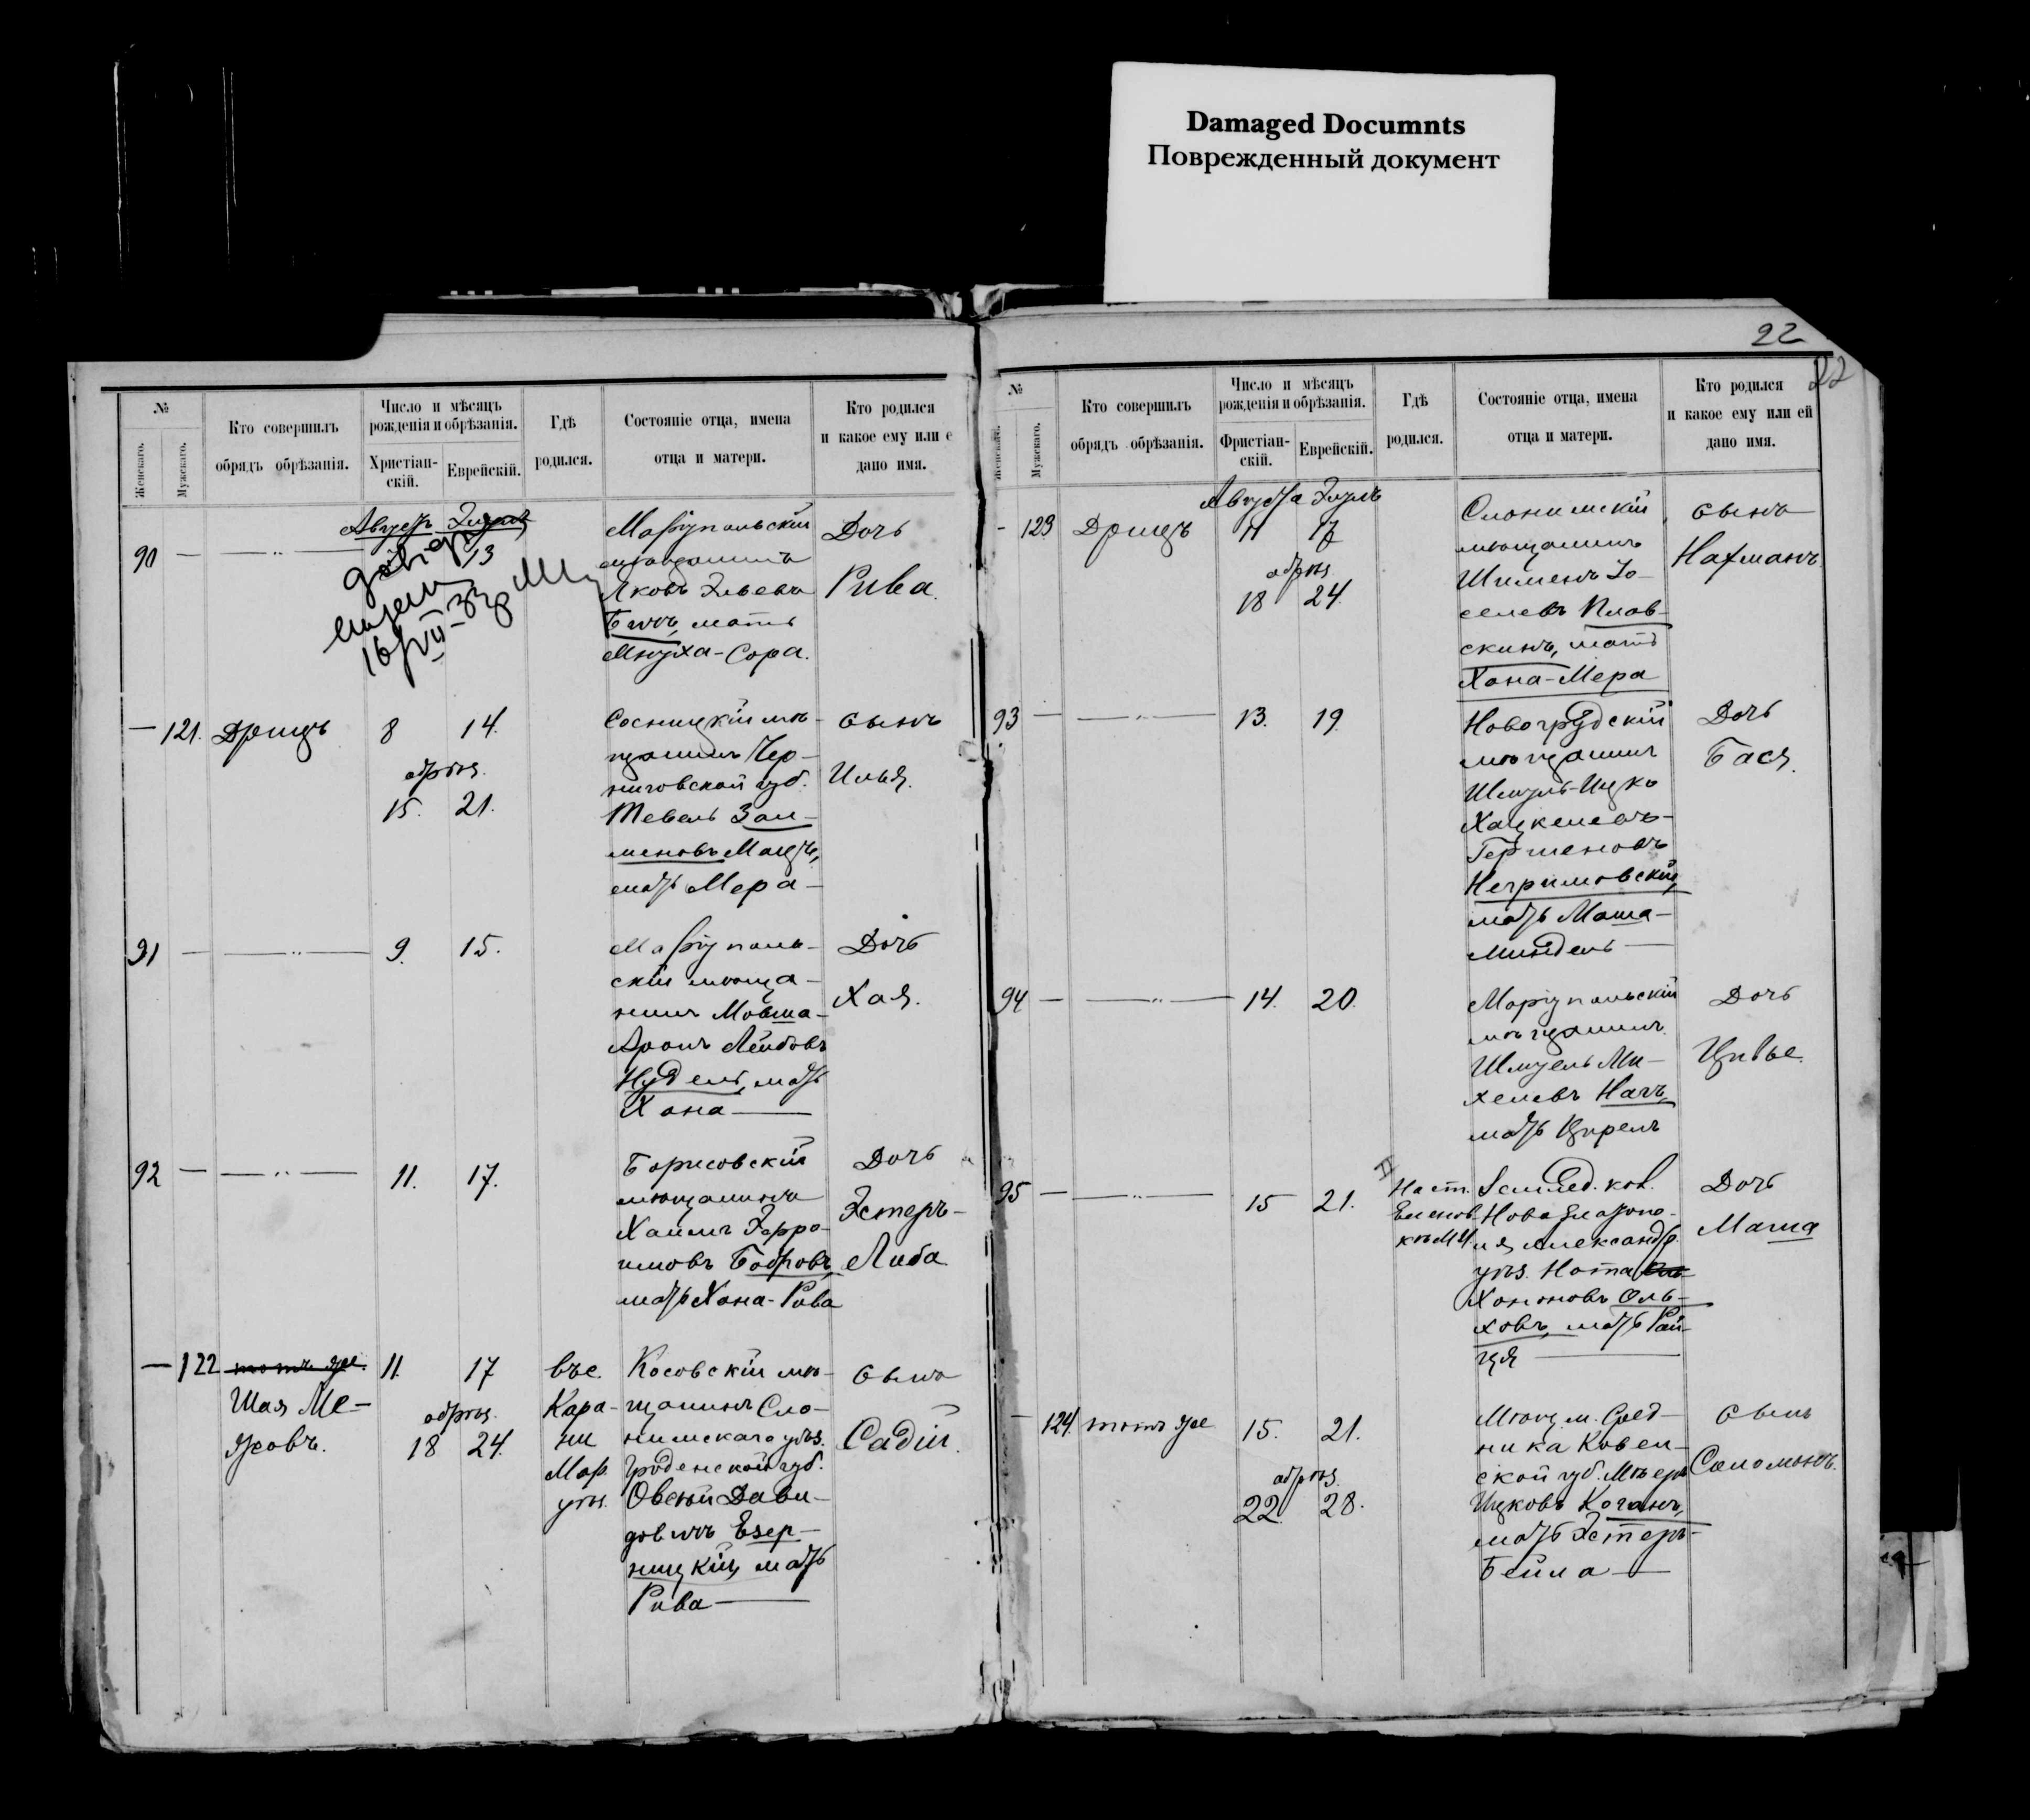 Damaged Documnts
Поврежденный документ
22
22
№
Женскаго.
Мужскаго.
Кто совершилъ
обрядъ обрѣзанія.
Число и мѣсяцъ
рожденія и обрѣзанія.
Христіан-
скій.
Еврейскій.
Гдѣ
родился.
Состояніе отца, имена
отца и матери.
Кто родился
и какое ему или е
дано имя.
90
13
16/VII-33
Маріупольскій
мѣщанинъ
Яковъ Эльевъ
мать
Мнуха-Сора.
Дочь
Рива.
121.
8
14.
обрѣз.
15.
21.
Сосницкій мѣ-
щанинъ Чер-
ниговской губ.
Тевель Зал-
мановъ
мать Мера
сынъ
Илья.
91
9.
15.
Маріуполь-
скій мѣща-
нинъ Мовша-
Аронъ Лейбовъ
Нудель, мать
Хана
Дочь
Хая.
92
11.
17.
Борисовскій
мѣщанинъ
Хаимъ Эфро-
имовъ Бобровъ,
мать Хана-Рива
Дочь
Эстеръ-
Либа
122
тотъ же.
Шая Ме-
жовъ.
11.
17
обрѣз.
18
24.
въ с.
Кара-
ни
Мар.
уѣз.
Косовскій мѣ-
щанинъ Сло-
нимскаго уѣз.
Гродненской губ.
Овсей Дави-
довичъ Езер-
ницкій, мать
Рива
сынъ
Садій.
№
Женскаго.
Мужскаго.
Кто совершилъ
обрядъ обрѣзанія.
Число и мѣсяцъ
рожденія и обрѣзанія.
Фристіан-
скій.
Еврейскій.
Гдѣ
родился.
Состояніе отца, имена
отца и матери.
Кто родился
и какое ему или ей
дано имя.
Августа Элулъ
123
11
17
обрѣз
18
24.
Слонимскій
мѣщанинъ
Шименъ Іо-
селевъ Плав-
скинъ, мать
Хана-Мера
сынъ
Нахманъ
93
13.
19.
Новогрудскій
мѣщанинъ
Шмуль-Ицко
Хацкелевъ-
Гершеновъ
Негримовскій,
мать Маша-
Миндель
Дочь
Бася.
94
14.
20.
Маріупольскій
мѣщанинъ
Шмуель Ми-
хелевъ Начъ,
мать Ципель
Дочь
Цивье.
95
15
21.
Ново
Александр.
уѣз. Нота
Ханоновъ Оль-
ховъ, мать Рай-
ця
Дочь
Маша
124.
тотъ же
15.
21.
обрѣз.
22.
28.
Мѣщ. м. Сред-
ника Ковен-
ской губ. Мѣеръ
Ицковъ Коганъ,
мать Эстеръ-
Бейла
сынъ
Соломонъ.